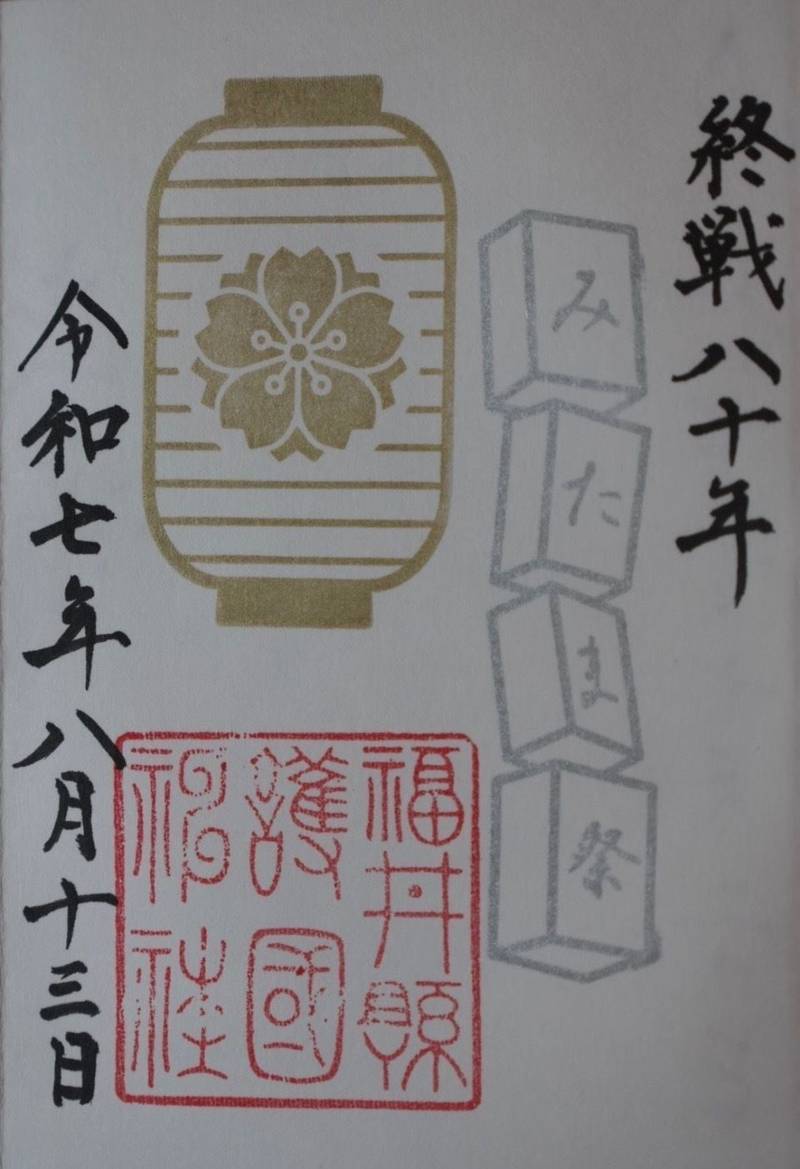 終戦八十年
みたま祭
福井縣
護國
神社
令和七年八月十三日